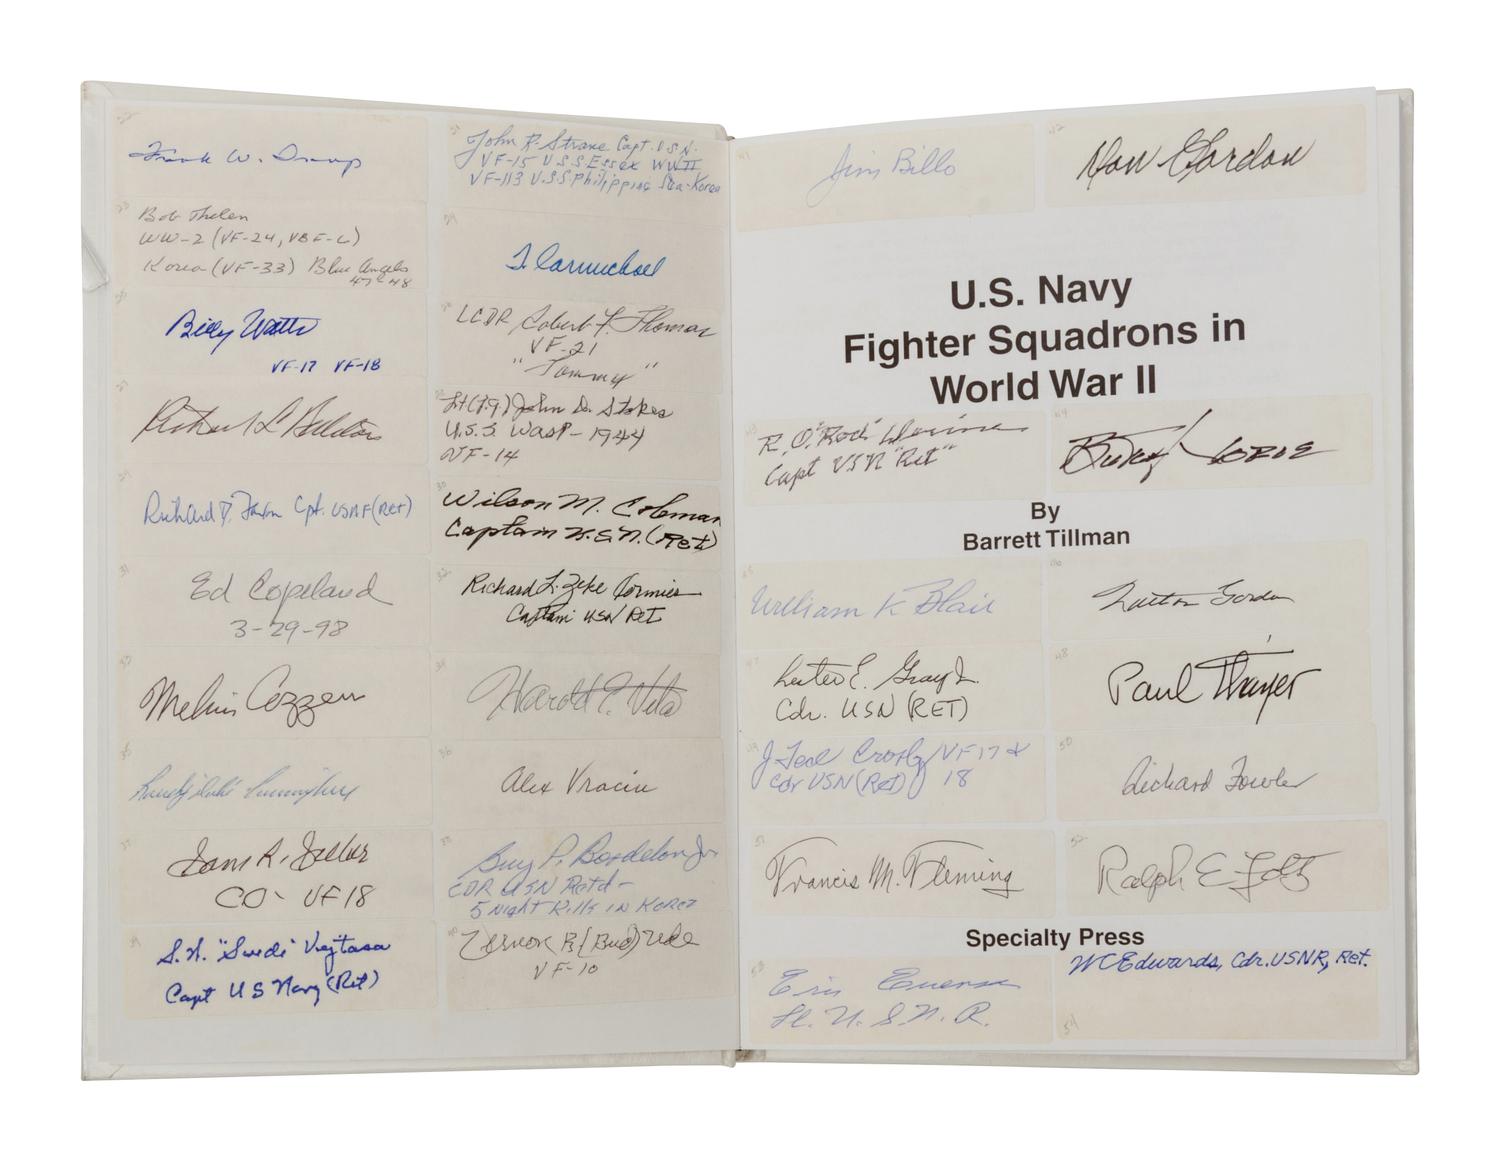 Frank W.
Bob Thelen
WW-2 (VF-24, VBF-6)
Korea (VF-33) Blue Angels
47-48
Billy Watts
VF-17 VF-18
Richard L.
Richard D. Cpt. USMF (Ret)
Ed Copeland
3-29-98
Melvin Cozzens
Randy "Duke" Cunningham
Sam R. Silber
CO - VF 18
S.W. "Swede" Vejtasa
Capt US Navy (Ret)
John R. Strane Capt. U.S.N.
VF-15 U.S.S Essex WWII
VF-113 U.S.S Philippine Sea-Korea
D. Carmichael
LCDR Robert F. Thomas
VF-21
"Tommy"
Lt(j.g.) John D. Stokes
U.S.S. Wasp - 1944
VF-14
Wilson M. Coleman
Captain U.S.N. (Ret)
Richard L. Zeke Cormier
Captain USN Ret
Harold E. Vita
Alex Vraciu
Guy P. Bordelon Jr.
CDR USN Retd -
5 Night Kills in Korea
Vernon R. (Bud) Ude
VF-10
Jim Billo
Don Gordon
U.S. Navy
Fighter Squadrons in
World War II
R.O. "Rod" Devine
Capt USN "Ret"
By
Barrett Tillman
William K Blair
Gordon
Lester E. Gray Jr.
Cdr. USN (RET)
Paul Thayer
J Teal Crosby VF 17 &
Cdr USN (Ret) 18
Richard Fowler
Francis M. Fleming
Ralph E Foltz
Specialty Press
WC Edwards, Cdr. USNR, Ret.
Eric Evenson
Lt. U.S.N.R.